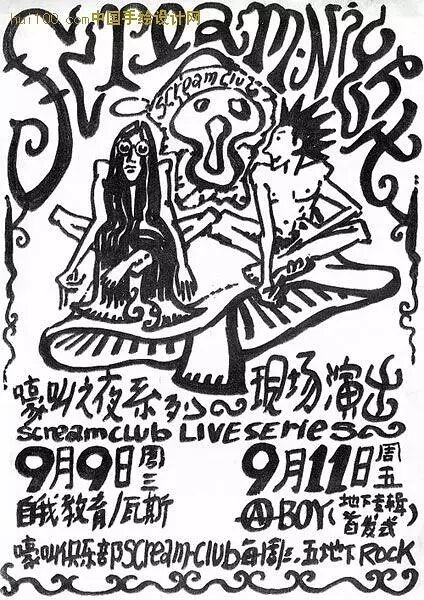 hui100.com中国手绘设计网
Scream.Night
Scream Club
嚎叫之夜系列~现场演出
Scream club LIVE SERIES~
9月9日周三
9月11日周五
自我教育/瓦斯
Ⓐ-BOY(地下专辑首发式)
嚎叫俱乐部Scream-club每周三.五地下ROCK